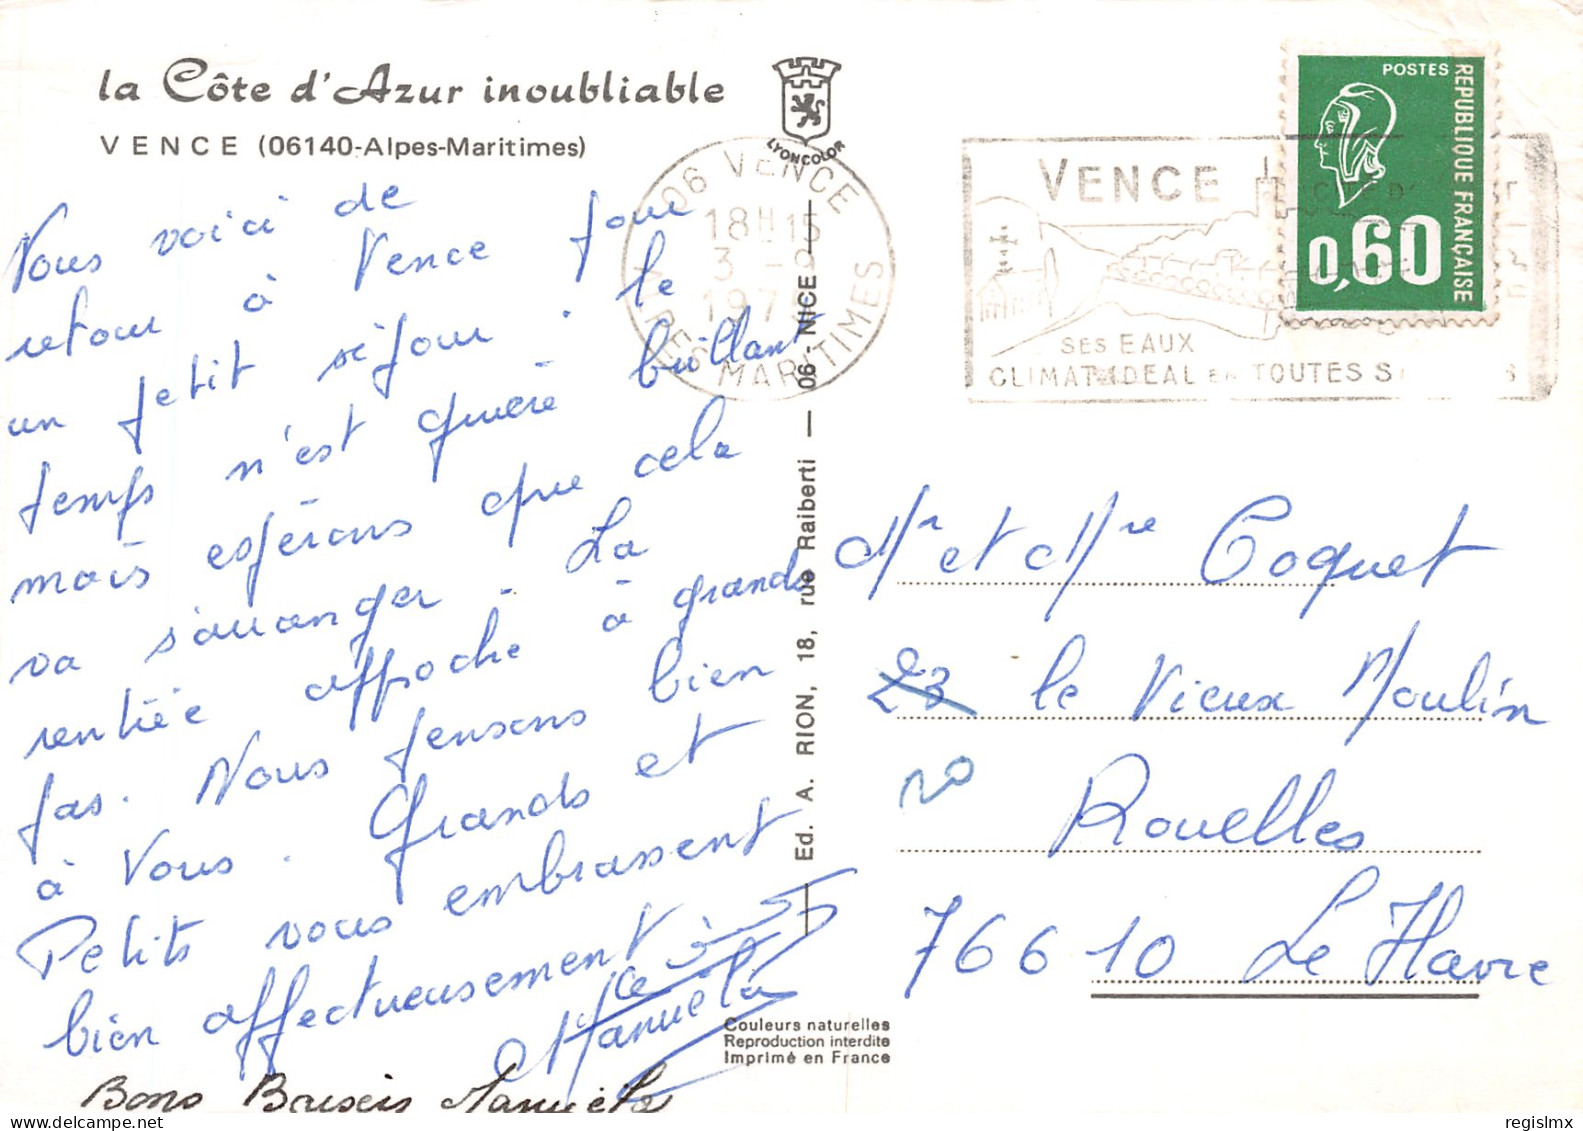 la Côte d'Azur inoubliable
VENCE (06140-Alpes-Maritimes)
LYONCOLOR
06 VENCE
18H15
3 -9
197
ALPES MARITIMES
VENCE
CITÉ D'
SES EAUX
CLIMAT IDEAL EN TOUTES S
POSTES
REPUBLIQUE FRANÇAISE
0,60
Nous voici de
retour à Vence pour
un petit séjour. le
temps n'est guère brillant
mais espérons que cela
va s'arranger - La
rentrée approche à grands
pas. Nous pensons bien
à Vous. Grands et
Petits vous embrassent
bien affectueusement
Manuela
Bons Baisers Manuela
Ed. A. RION, 18, rue Raiberti — 06 - NICE —
Couleurs naturelles
Reproduction interdite
Imprimé en France
Mr et Mme Coquet
23 le Vieux Moulin
20
Rouelles
76610 Le Havre
regislmx